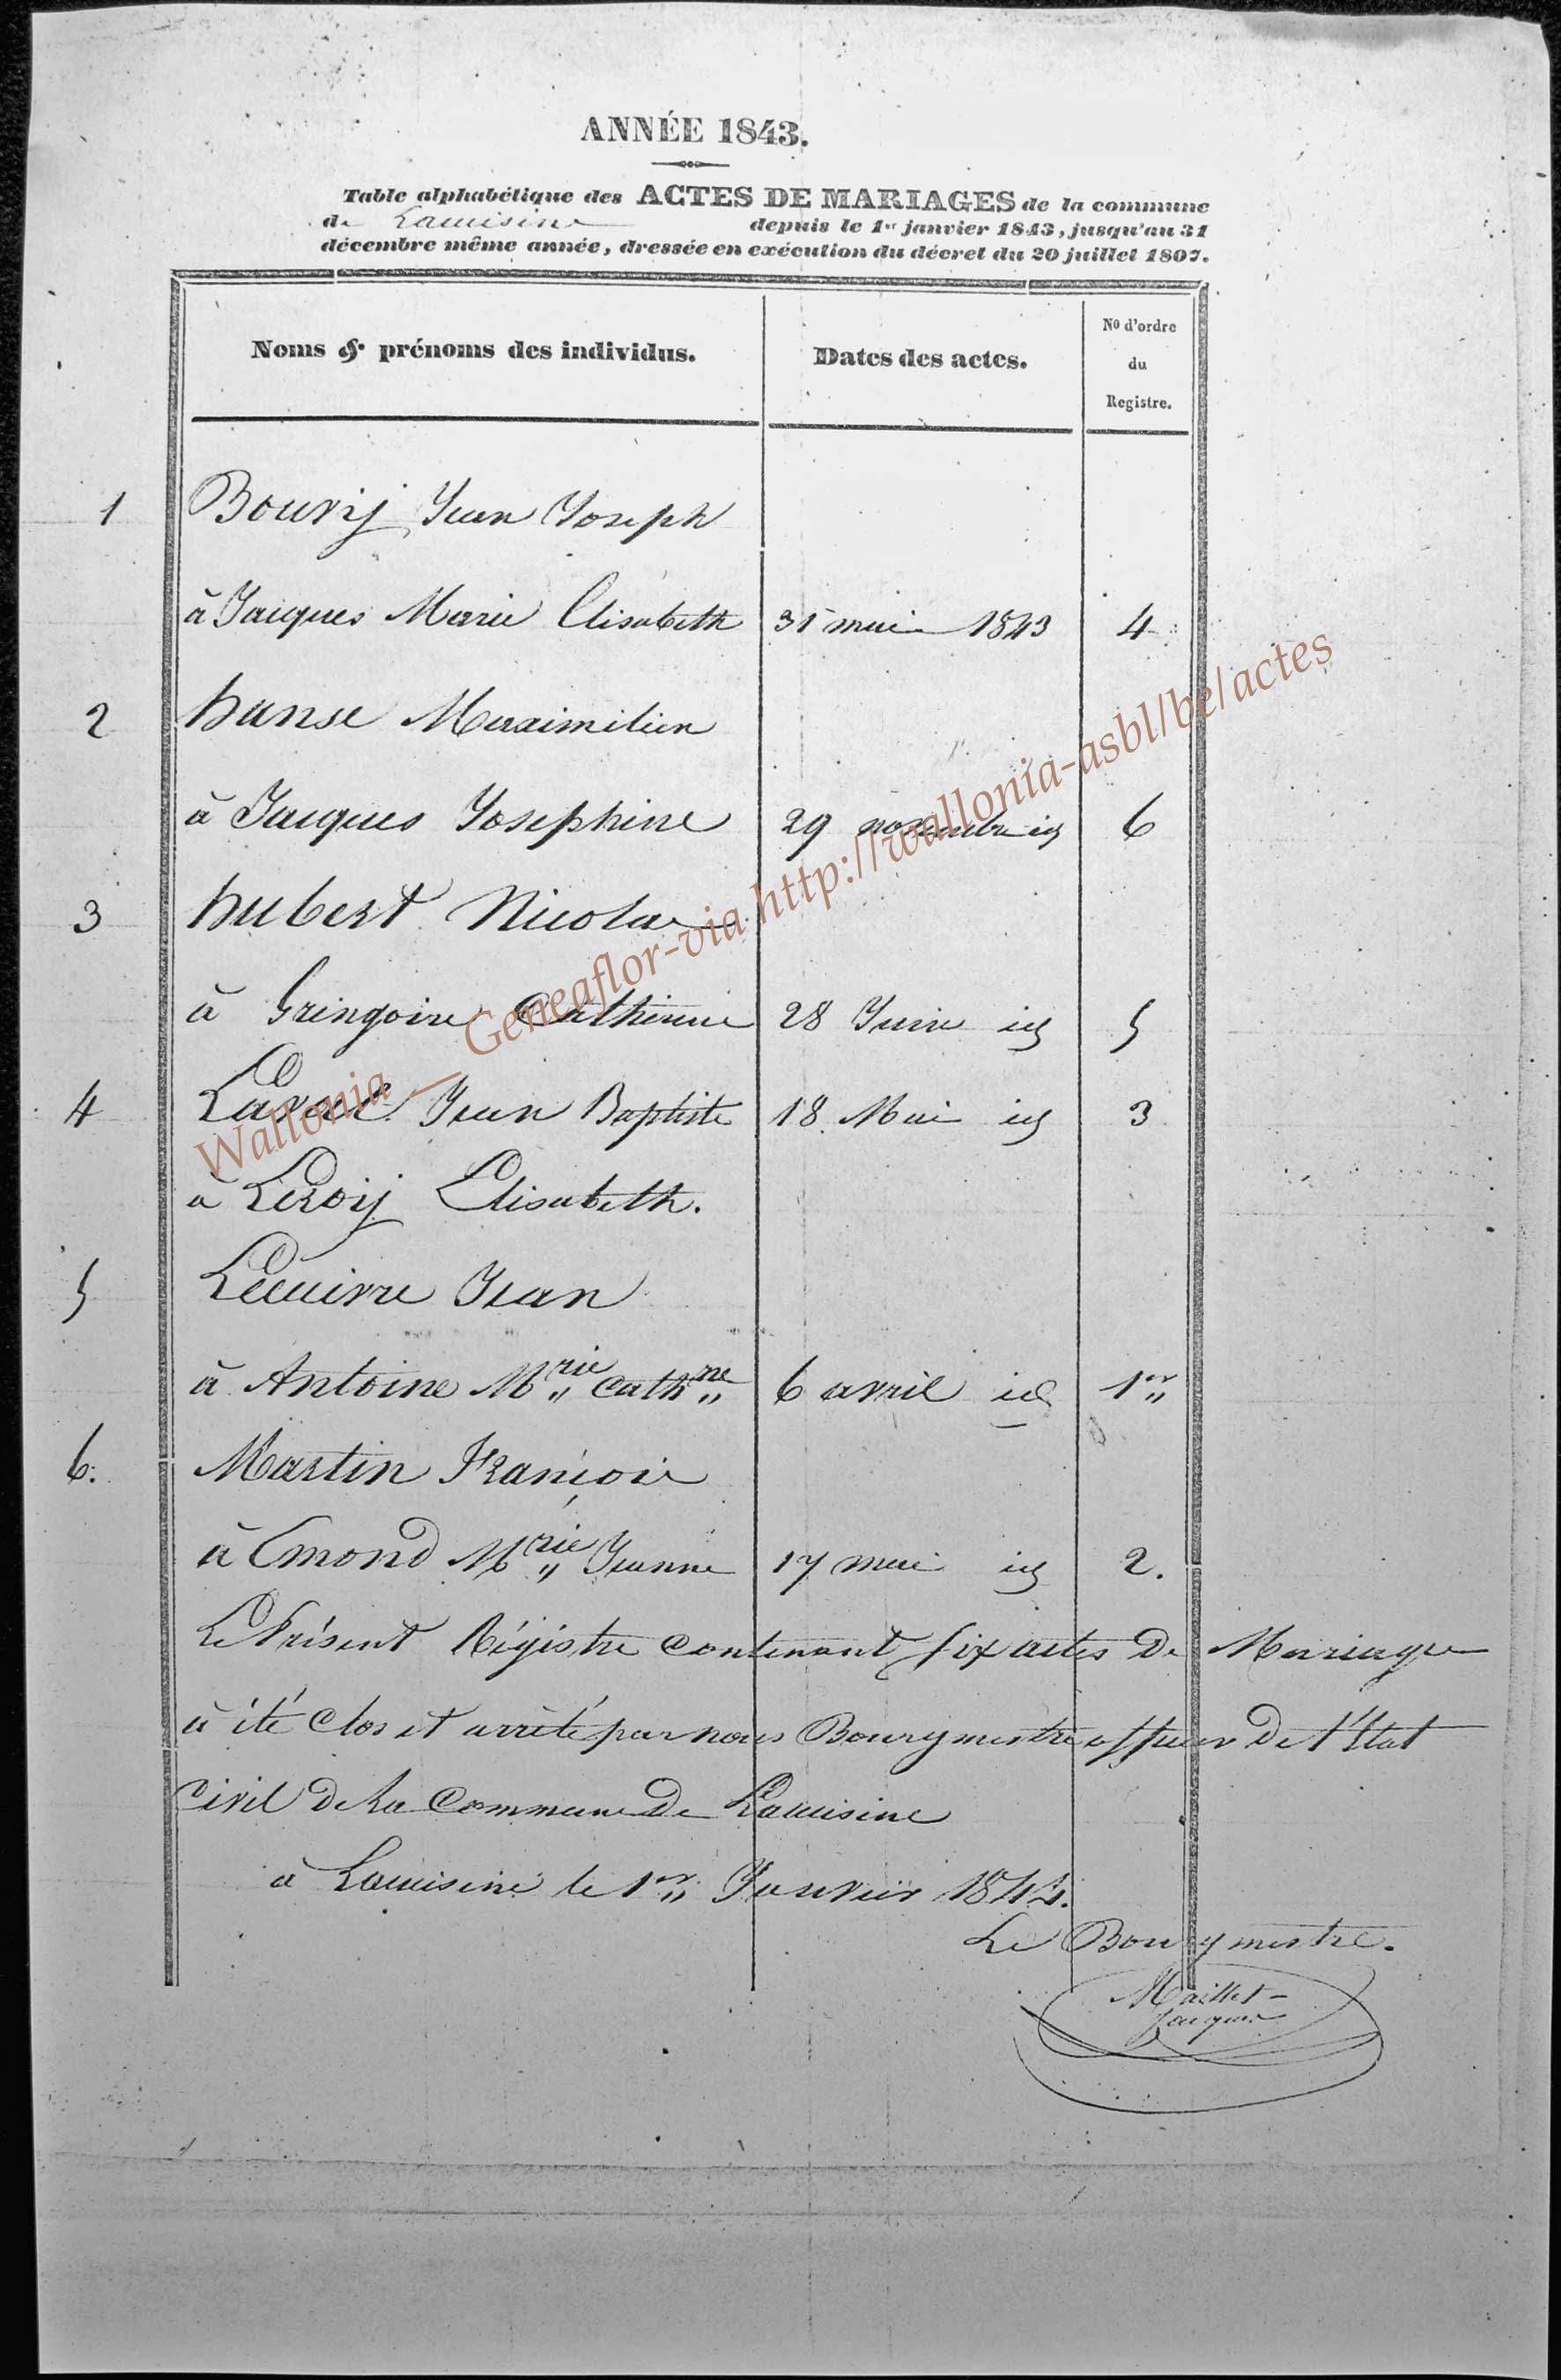 ANNÉE 1843.
Table alphabétique des ACTES DE MARIAGES de la commune
de Lacuisine depuis le 1er janvier 1843, jusqu'au 31
décembre même année, dressée en exécution du décret du 20 juillet 1807.
Noms & prénoms des individus. Dates des actes. No d'ordre du Registre.
1 Bourij Jean Joseph
à Jacques Marie Elisabeth 31 mai 1843 4
2 hanse Maximilien
à Jacques Josephine 29 novembre id 6
3 hubert Nicolas
à Gringoire Catherine 28 Juin id 5
4 Jean Baptiste 18 Mai id 3
à Leroij Elisabeth.
5 Lecuivre Jean
à Antoine Mrie Cathne 6 avril id 1er
6. Martin François
à Emond Mrie Jeanne 17 mai id 2.
Le Présent Régistre contenant six actes De Mariage
à été Clos et arrêté par nous Bourgmestre officier De l'Etat
Civil De La Commune De Lacuisine
à Lacuisine le 1er Janvier 1844.
Le Bourgmestre.
Maillet-
Jacques
Wallonia – Geneaflor-via http://wallonia-asbl/be/actes